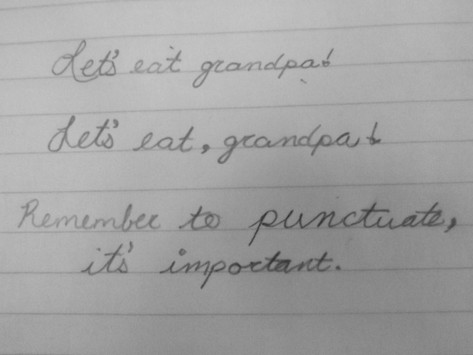 Let's eat grandpa!
Let's eat, grandpa!
Remember to punctuate,
it's important.